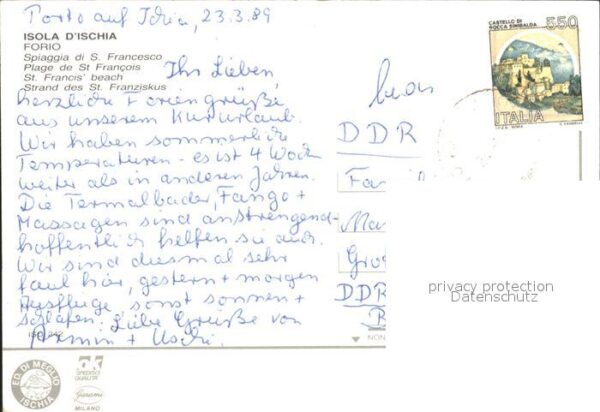 Porto auf Ischia, 23.3.89
ISOLA D'ISCHIA
FORIO
Spiaggia di S. Francesco
Plage de St François
St. Francis' beach
Strand des St. Franziskus
Ihr Lieben,
herzliche Feriengrüße
aus unserem Kururlaub.
Wir haben sommerliche
Temperaturen - es ist 4 Woch
weiter als in anderen Jahren.
Die Termalbäder, Fango +
Massagen sind anstrengend -
hoffentlich helfen sie auch.
Wir sind diesmal sehr
faul hier, gestern + morgen
Ausflüge sonst sonnen +
schlafen. Liebe Grüße von
Armin + Uschi.
CASTELLO DI
ROCCA SINIBALDA
550
ITALIA
DDR
Fa
Ma
Gro
DDR
B
privacy protection
Datenschutz
NON
ED. DI MEGLIO
ISCHIA
ak
MILANO